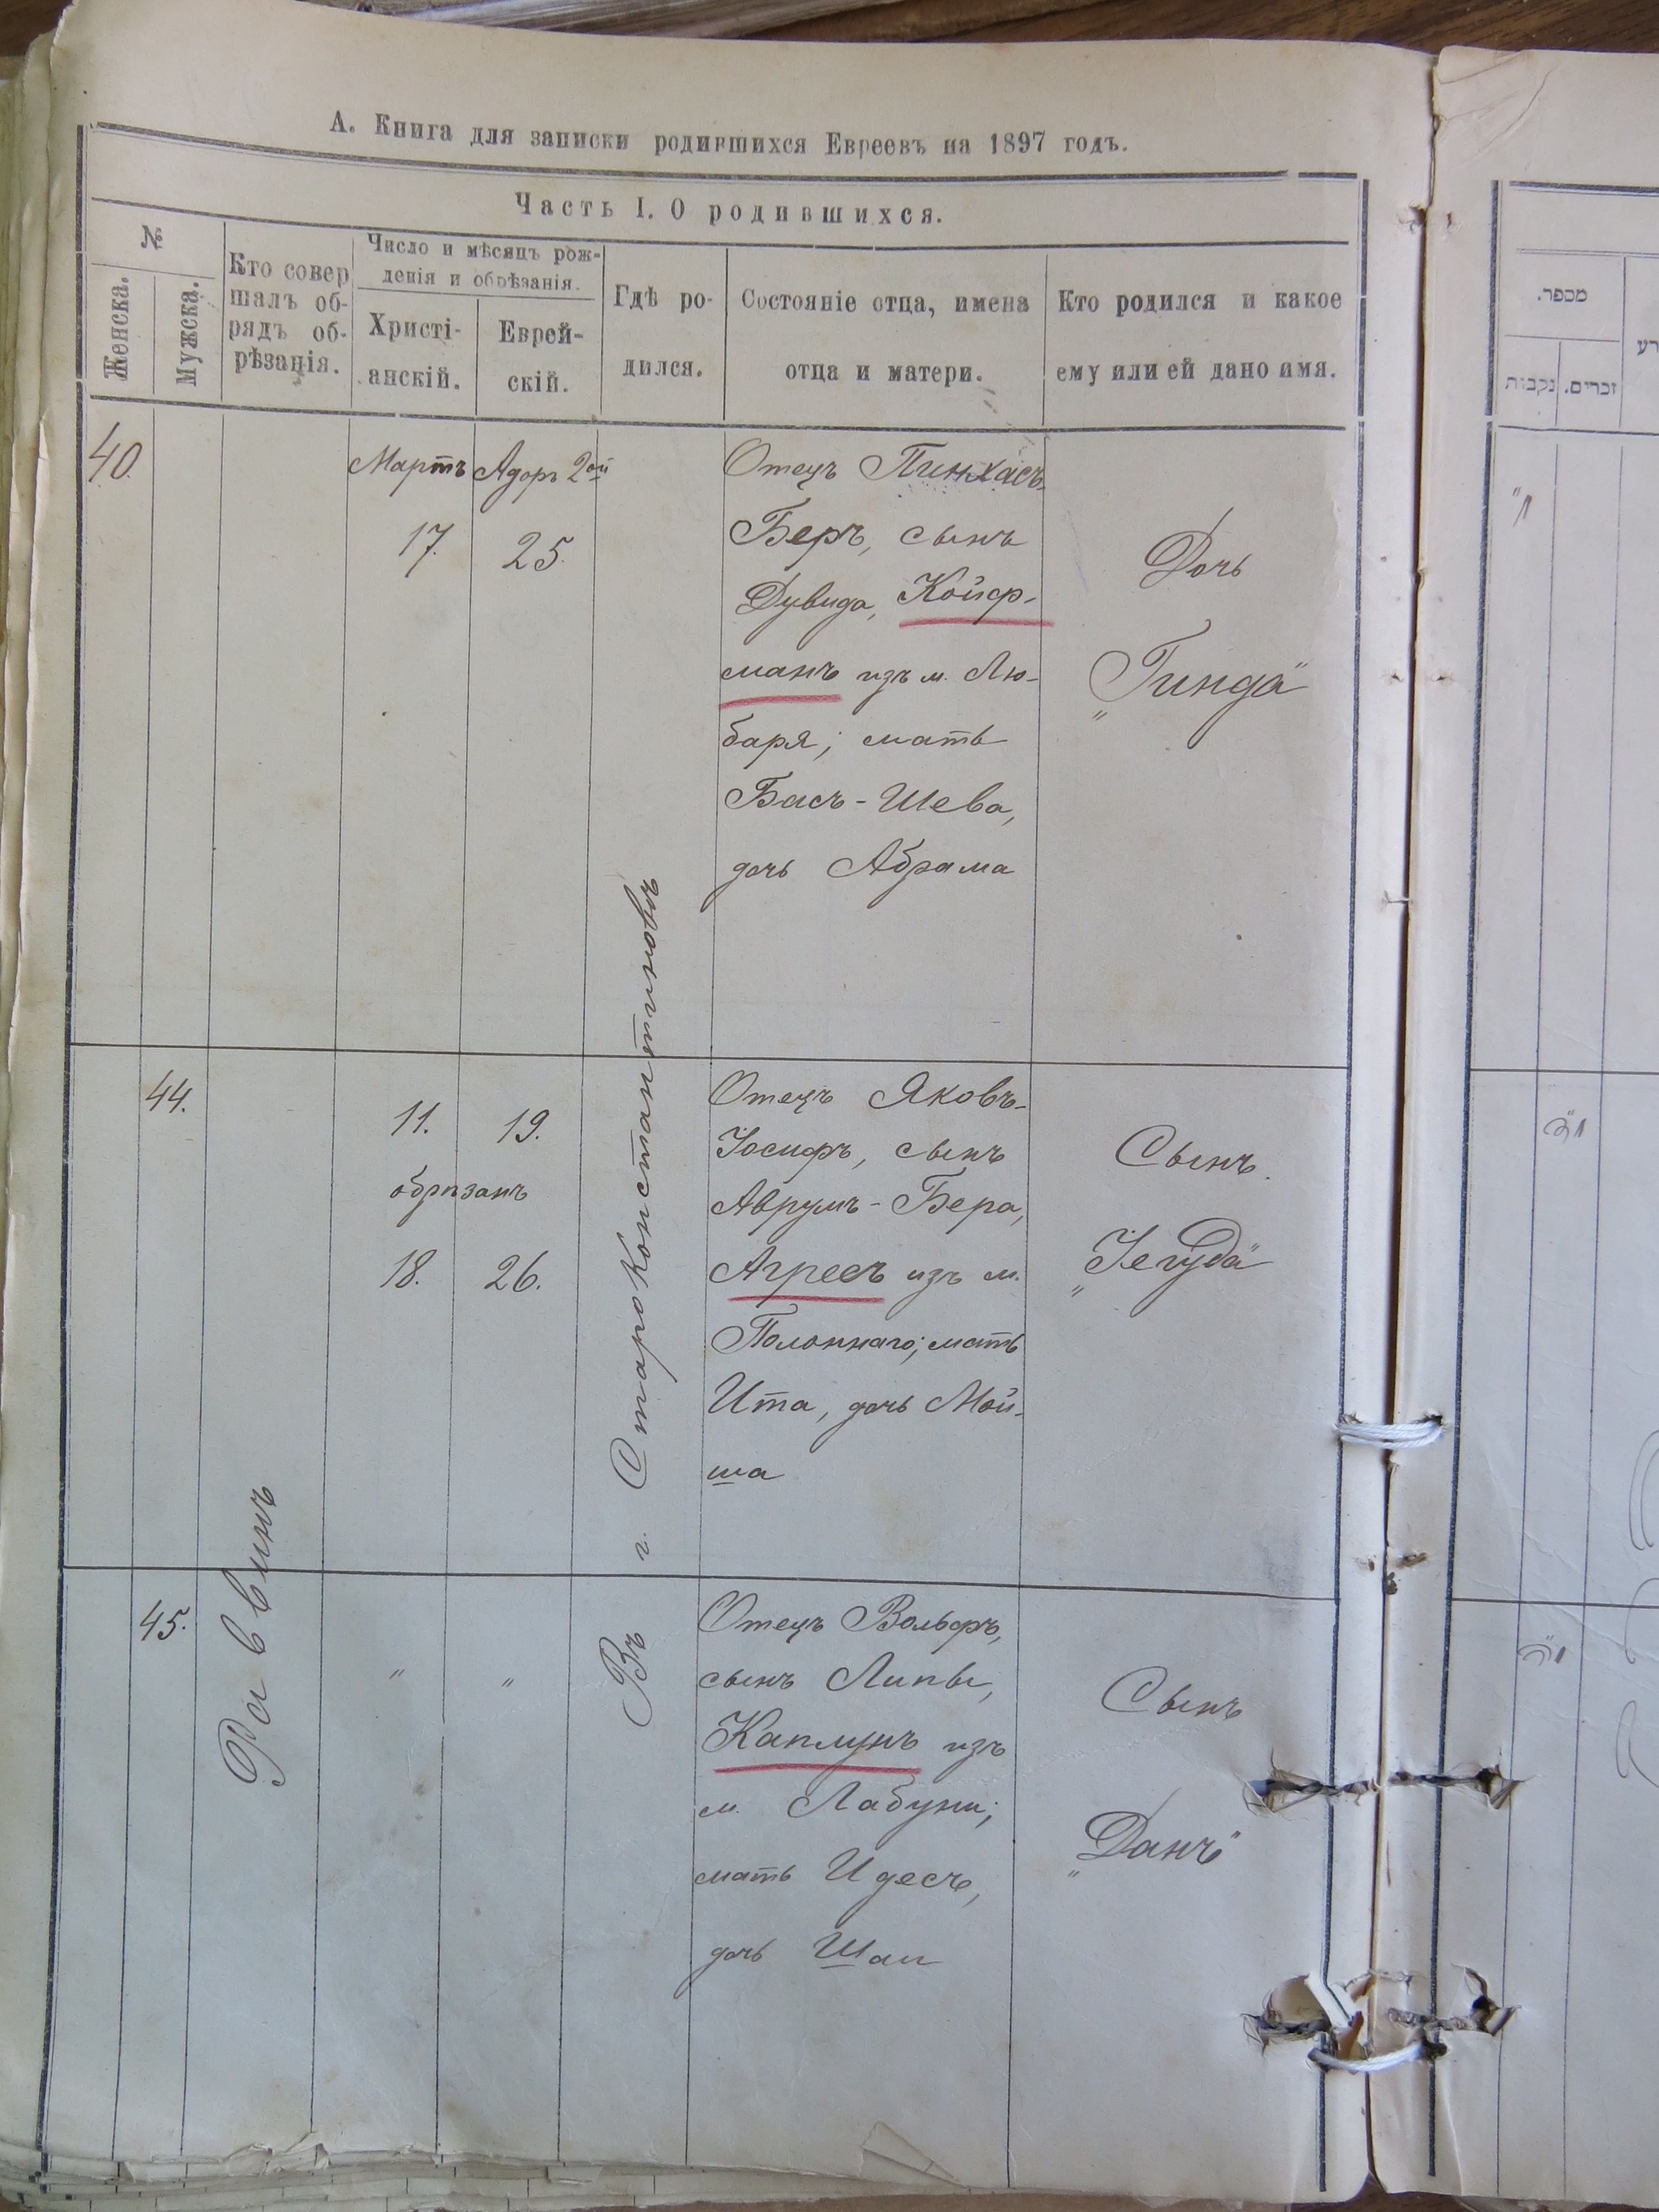 А. Книга для записки родившихся Евреевъ на 1897 годъ.
Часть I. О родившихся.
№
Женска.
Мужска.
Кто совер
шалъ об-
рядъ об-
рѣзанія.
Число и мѣсяцъ рож-
денія и обрѣзанія.
Христі-
анскій.
Еврей-
скій.
Гдѣ ро-
дился.
Состояніе отца, имена
отца и матери.
Кто родился и какое
ему или ей дано имя.
40.
Мартъ
17.
Адоръ 2ой
25.
Отецъ Пинхасъ-
Беръ, сынъ
Дувида, Койф-
манъ изъ м. Лю-
баря; мать
Бася-Шева,
дочь Абрама
Дочь
„Гинда"
44.
11.
19.
обрѣзанъ
18.
26.
Отецъ Яковъ-
Іосифъ, сынъ
Аврумъ-Бера,
Агресъ изъ м.
Полоннаго; мать
Ита, дочь Мой-
ша
Сынъ.
„Іегуда"
45.
"
"
Отецъ Вольфъ,
сынъ Липы,
Каплунъ изъ
м. Лабуни;
мать Идесъ,
дочь Шаи
Сынъ
„Данъ"
Раввинъ
Въ г. Староконстантиновъ
מספר.
נקבות
זכרים.